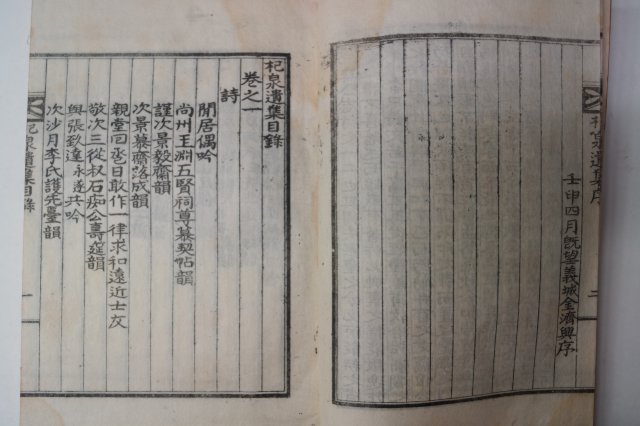 杞泉遺集序
二
壬申四月旣望義城金濟興序
杞泉遺集目錄
卷之一
詩
閒居偶吟
尚州王淵五賢祠尊慕契帖韻
謹次景毅齋韻
次景慕齋落成韻
親堂回巹日敢作一律求和遠近士友
敬次三從叔石痴公壽筵韻
與張致達永遂共吟
次沙月李氏護先臺韻
杞泉遺集目錄
一